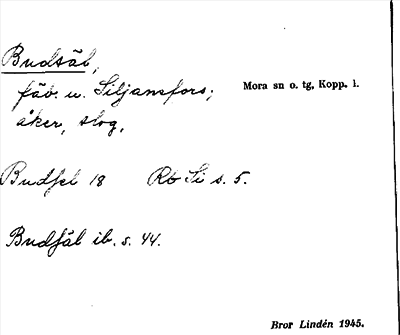 Budsäl,
fäb. u. Siljansfors;
Mora sn o. tg, Kopp. l.
åker, slog,
Budsel 18 Rb Si s. 5.
Budsäl ib. s. 44.
Bror Lindén 1945.